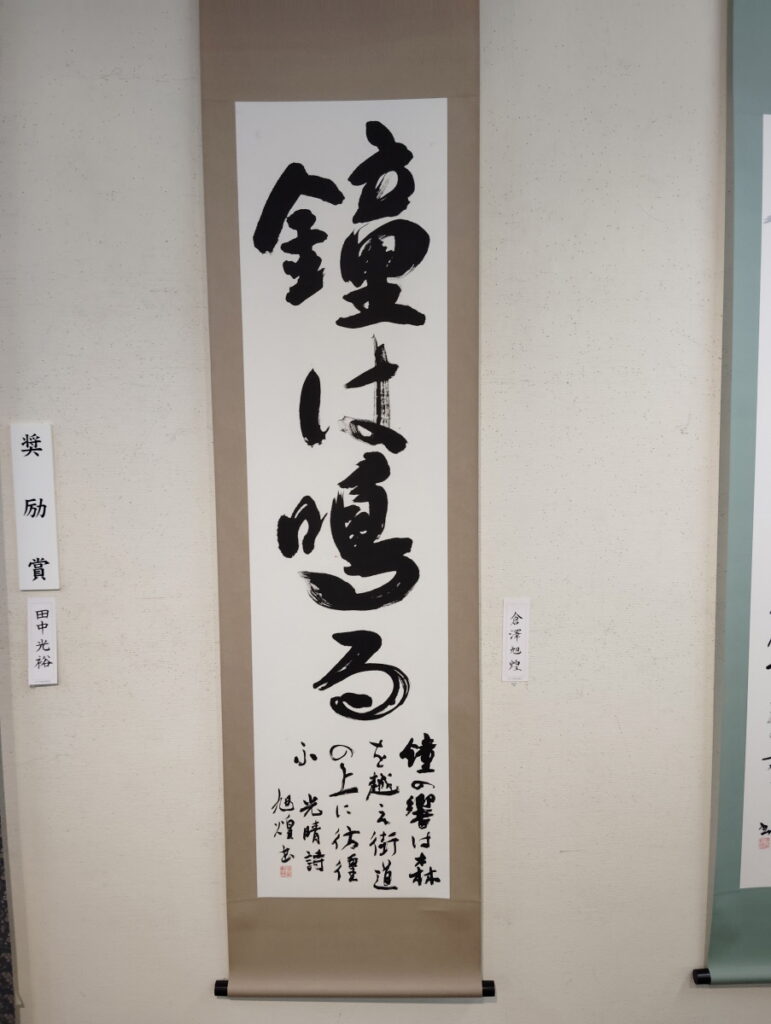 鐘は鳴る
鐘の響は森
を越え街道
の上に彷徨
ふ
光晴詩
旭煌書
倉澤旭煌
奨励賞
田中光裕